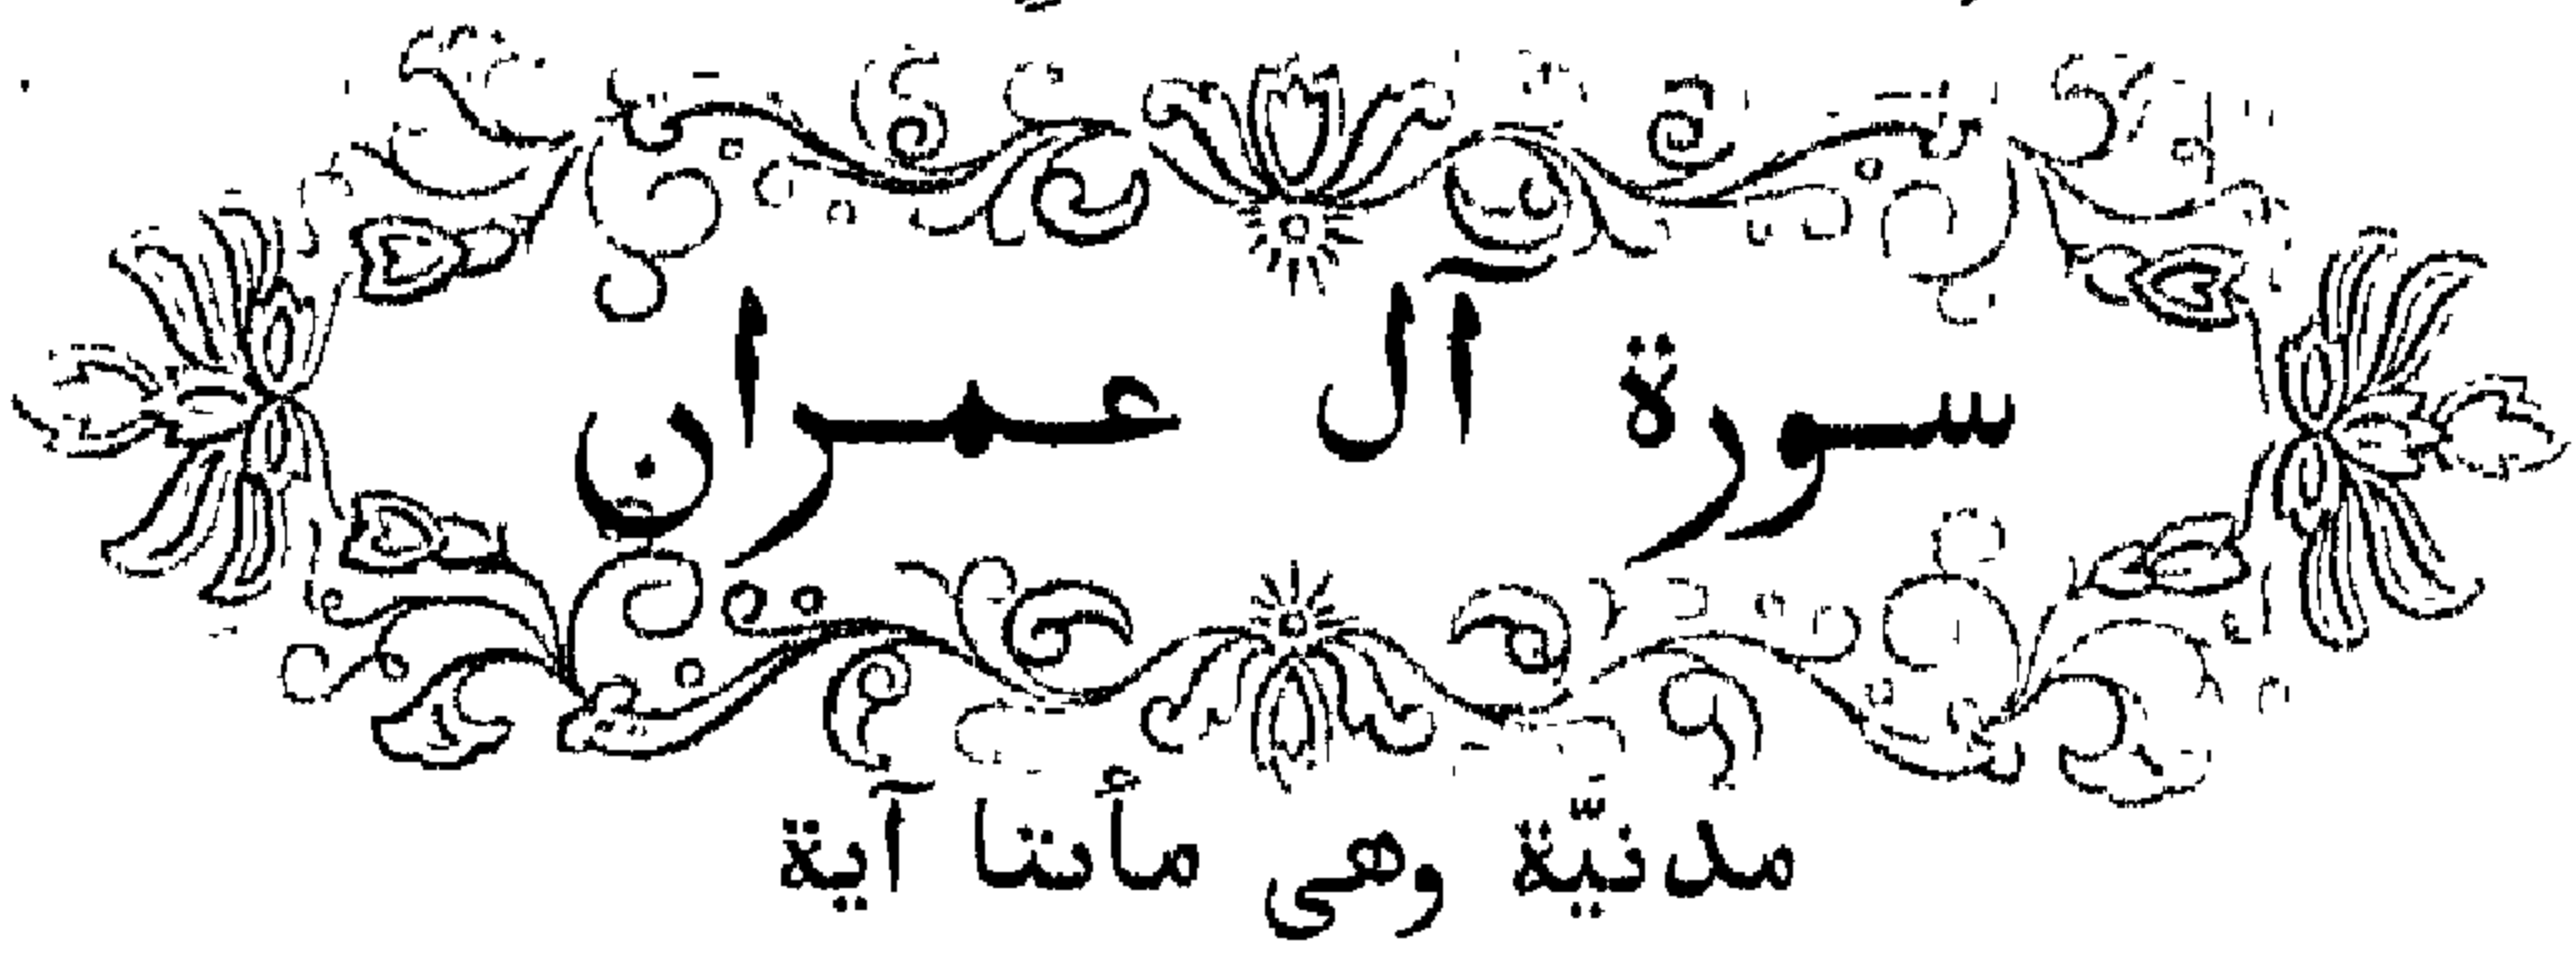 سورة آل عمران
مدنيّة وهى مأىتا آية